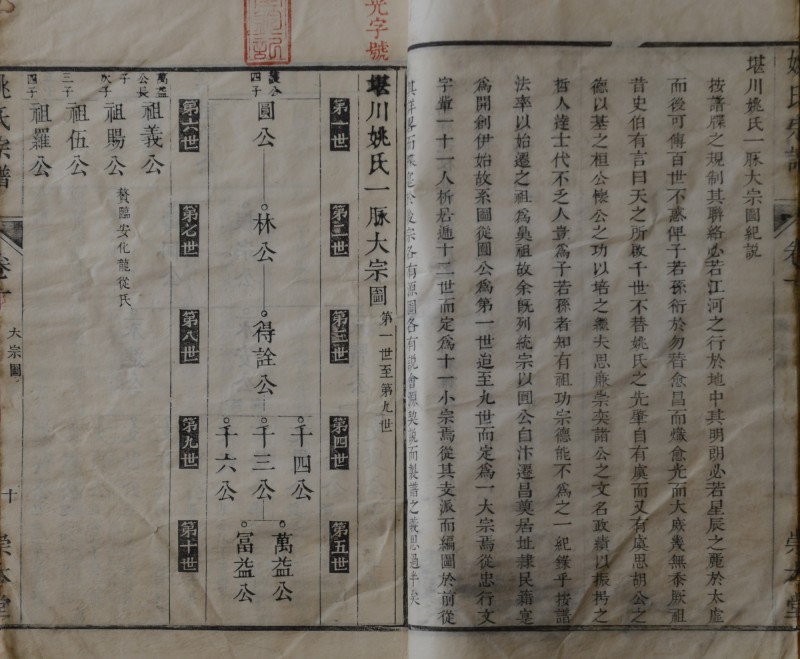 堪川姚氏一脉大宗圖紀説
按譜牒之規制其聯絡必若江河之行於地中其明朗必若星辰之麗於太虛
而後可傳百世不紊俾子若孫衍於勿替愈昌而熾愈光而大庶幾無忝厥祖
昔史伯有言曰天之所啟千世不替姚氏之先肇自有虞而又有虞思胡公之
德以基之桓公懷公之功以培之繼夫思廉崇奕諸公之文名政績以振揚之
哲人達士代不乏人貴為子若孫者知有祖功宗德能不為之一紀錄乎按譜
法率以始遷之祖為吳祖故余既列統宗以圓公自汴遷昌奠居址隸民籍寔
為開創伊始故系圖從圓公為第一世迨至九世而定為一大宗焉從忠行文
字輩一十一人析居迤十二世而定為十一小宗焉從其支派而編圖於前從
宗各有源圖各有説會源
而製譜之義思過半矣
姚氏宗譜
卷十
崇本堂
光字號
堪川姚氏一脉大宗圖
第一世至第九世
第一世
第二世
第三世
第四世
第五世
護公
四子
圓公
林公
得詮公
千四公
千三公
千六公
萬益公
富益公
第六世
第七世
第八世
第九世
第十世
萬益
公長
子
祖義公
次子
祖賜公
贅臨安化龍從氏
三子
祖伍公
四子
祖羅公
姚氏宗譜
卷十
大宗圖
十
崇本堂